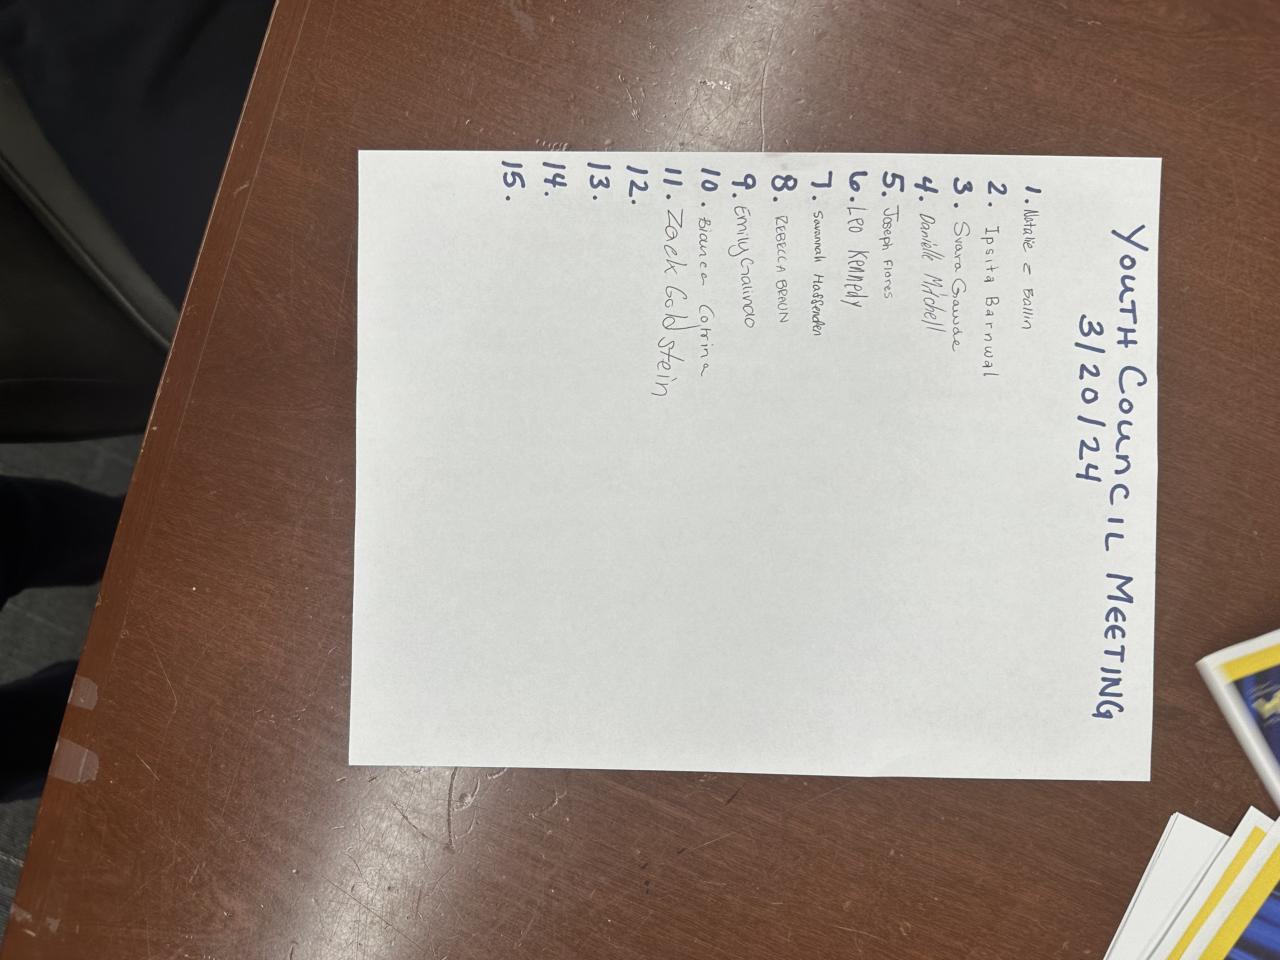 YOUTH COUNCIL MEETING
3/20/24
1. Natalie C Ballin
2. Ipsita Barnwal
3. Svara Gawde
4. Danielle Mitchell
5. Joseph Flores
6. Leo Kennedy
7. Savannah Haffenden
8. REBECCA BRAUN
9. Emily Galindo
10. Bianca Cotrina
11. Zack Goldstein
12.
13.
14.
15.